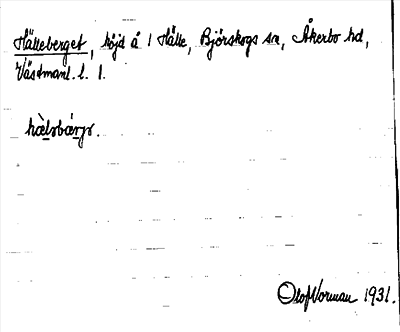 Hälleberget, höjd å 1 Hälle, Björskogs sn, Åkerbo hd,
Västmanl. l. 1.
Olof Norman 1931.